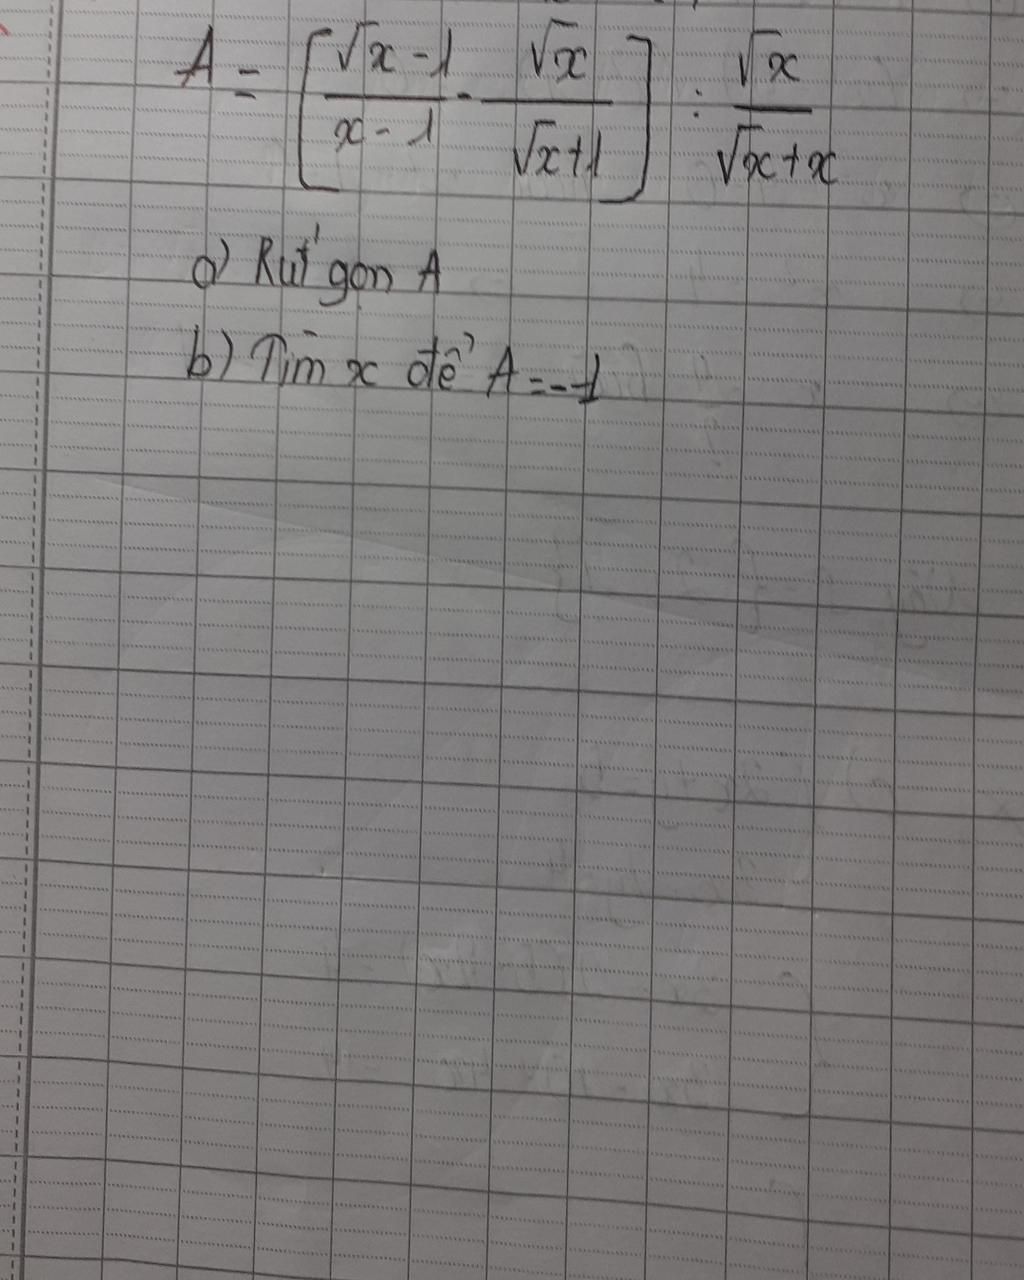 A = [ (√x - 1)/(x - 1) - √x/(√x + 1) ] : √x/(√x + x)
a) Rút gọn A
b) Tìm x để A = -1